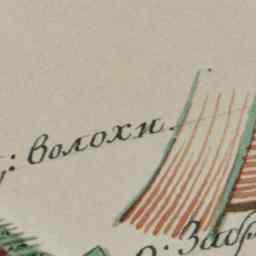 : волохи.
: Забр